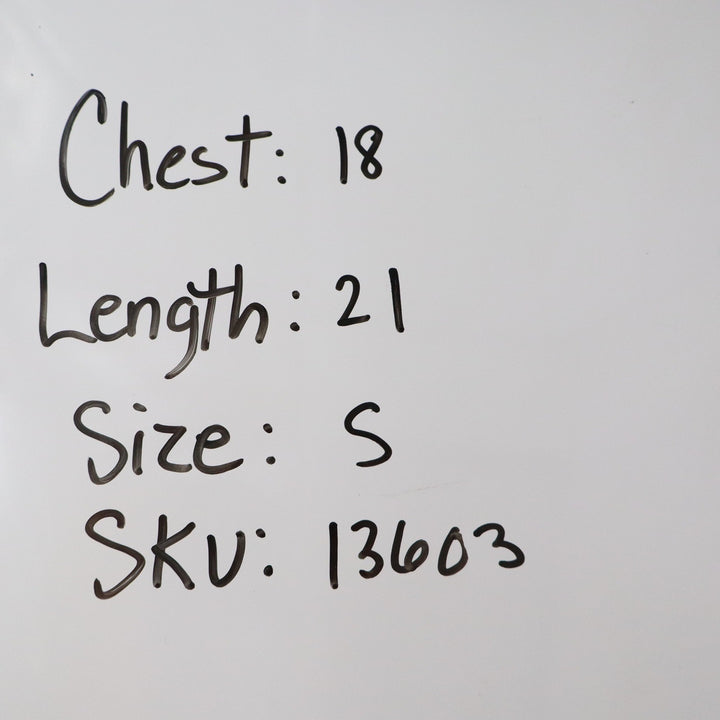 Chest: 18
Length: 21
Size: S
SKU: 13603